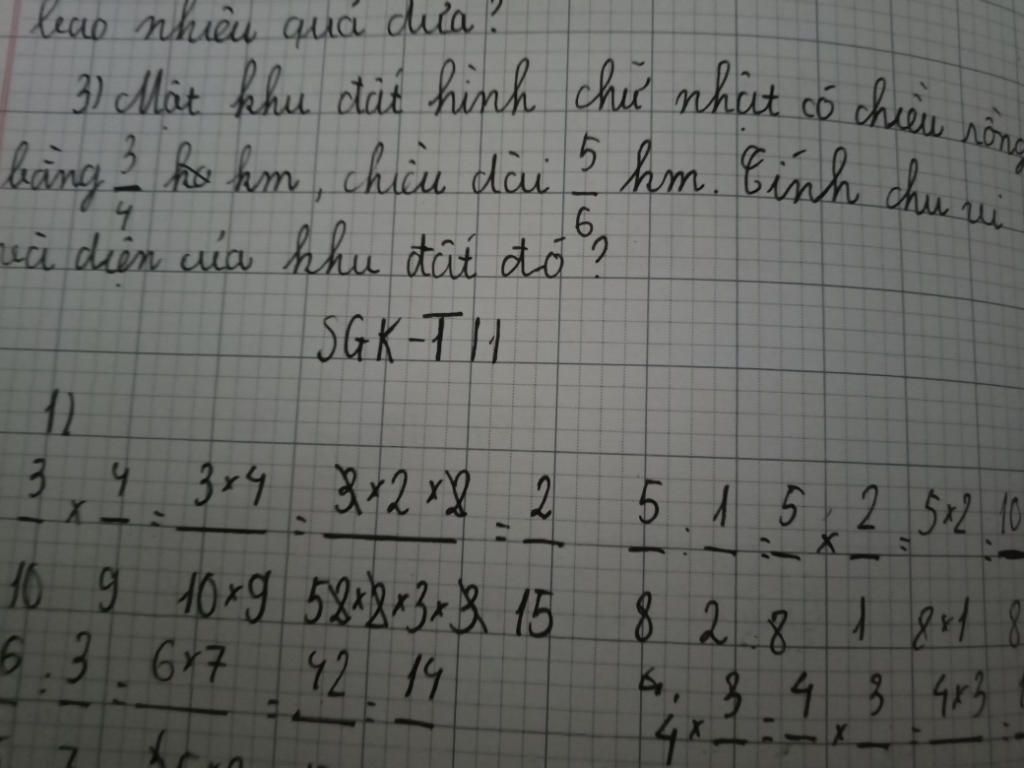 bao nhiêu quả dưa?
3) Một khu đất hình chữ nhật có chiều rông
bằng 3/4 km, chiều dài 5/6 hm. Tính chu vi
và diện của khu đất đó?
SGK-T11
1)
3/10 × 4/9 = 3×4/10×9 = 3×2×2/5×2×3×3 = 2/15
5/8 : 1/2 = 5/8 × 2/1 = 5×2/8×1 = 10/8
6 : 3 = 6×7 = 42 = 14
4 × 3 = 4 × 3 = 4×3 =